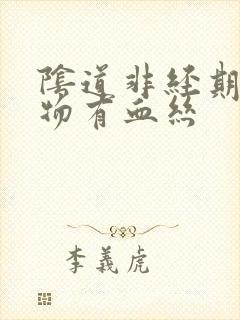 陰道非經期
物有血絲
李義虎